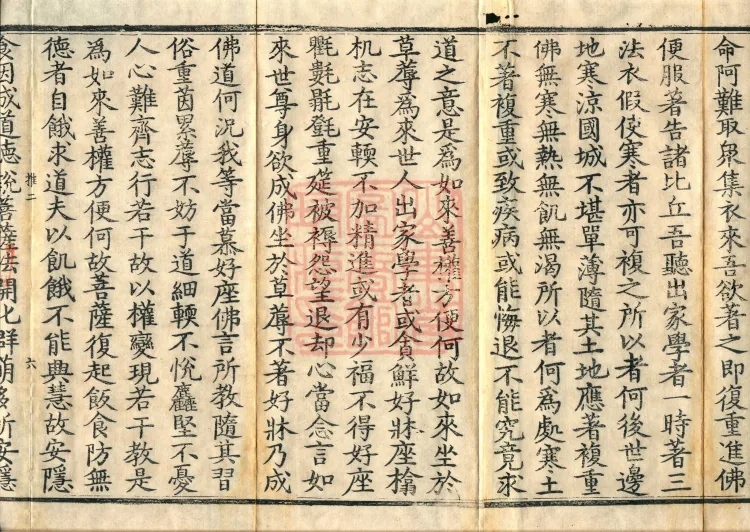 命阿難取眾集衣來吾欲著之即復重進佛
便服著告諸比丘吾聽出家學者一時著三
法衣假使寒者亦可複之所以者何後世邊
地寒涼國城不堪單薄隨其土地應著複重
佛無寒無熱無飢無渴所以者何為處寒土
不著複重或致疾病或能悔退不能究竟求
道之意是為如來善權方便何故如來坐於
草蓐為來世人出家學者或貪鮮好牀座㯓
机志在安輭不加精進或有少福不得好座
氍𣰆毾㲪重筵被褥怨望退却心當念言如
來世尊身欲成佛坐於草蓐不著好牀乃成
佛道何況我等當慕好座佛言所教隨其習
俗重茵累蓐不妨于道細輭不悅麤堅不憂
人心難齊志行若干故以權變現若干教是
為如來善權方便何故菩薩復起飯食防無
德者自餓求道夫以飢餓不能興慧故安隱
推二
六
食因成道德悅菩薩法開化群萌多所安隱